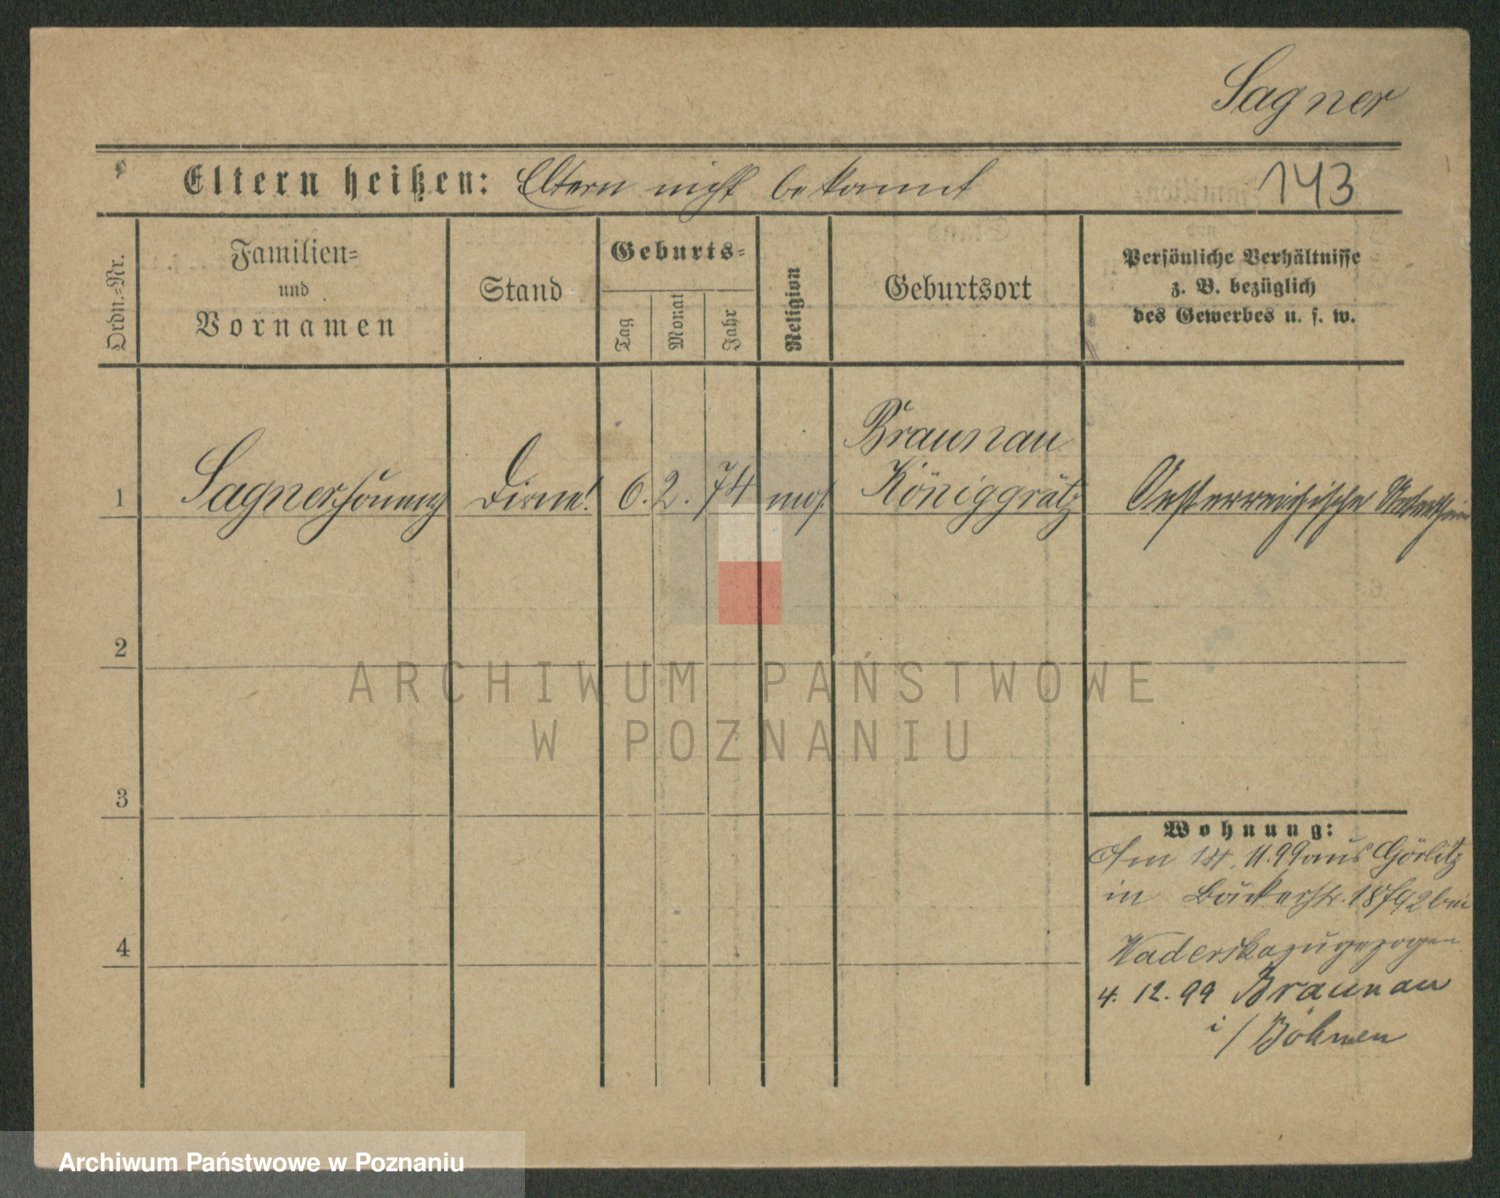 Sagner
Eltern heißen: Eltern nicht bekannt 143
Ordn.-Nr.
Familien-
und
Vornamen
Stand
Geburts-
Tag
Monat
Jahr
Religion
Geburtsort
Persönliche Verhältnisse
z. B. bezüglich
des Gewerbes u. s. w.
1 Sagner Dirne! 6. 2. 74 mos.
Braunau
Königgrätz
Oesterreichische
2
3
4
Wohnung:
Am 14. 11. 99 aus Görlitz
in Bäckerstr. 18/92 bei
zugezogen
4. 12. 99 Braunau
i/Böhmen
ARCHIWUM PAŃSTWOWE
W POZNANIU
Archiwum Państwowe w Poznaniu